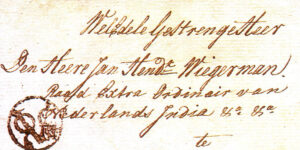 WelEdele Gestrenge Heer
Den Heere Jan Hendr Wiegerman.
Raad Extra Ordinair van
Nederlands India &a &a
te